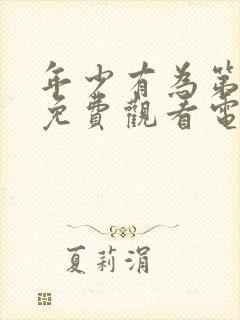 年少有為第
免費觀看電
夏莉涓